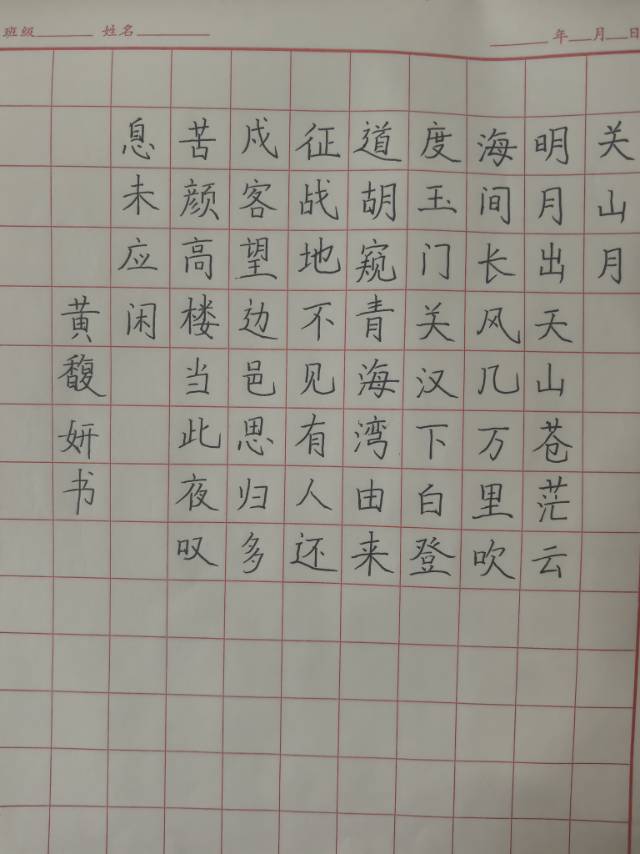 班级 姓名 年 月 日
关山月
明月出天山苍茫云
海间长风几万里吹
度玉门关汉下白登
道胡窥青海湾由来
征战地不见有人还
戍客望边邑思归多
苦颜高楼当此夜叹
息未应闲
黄馥妍书